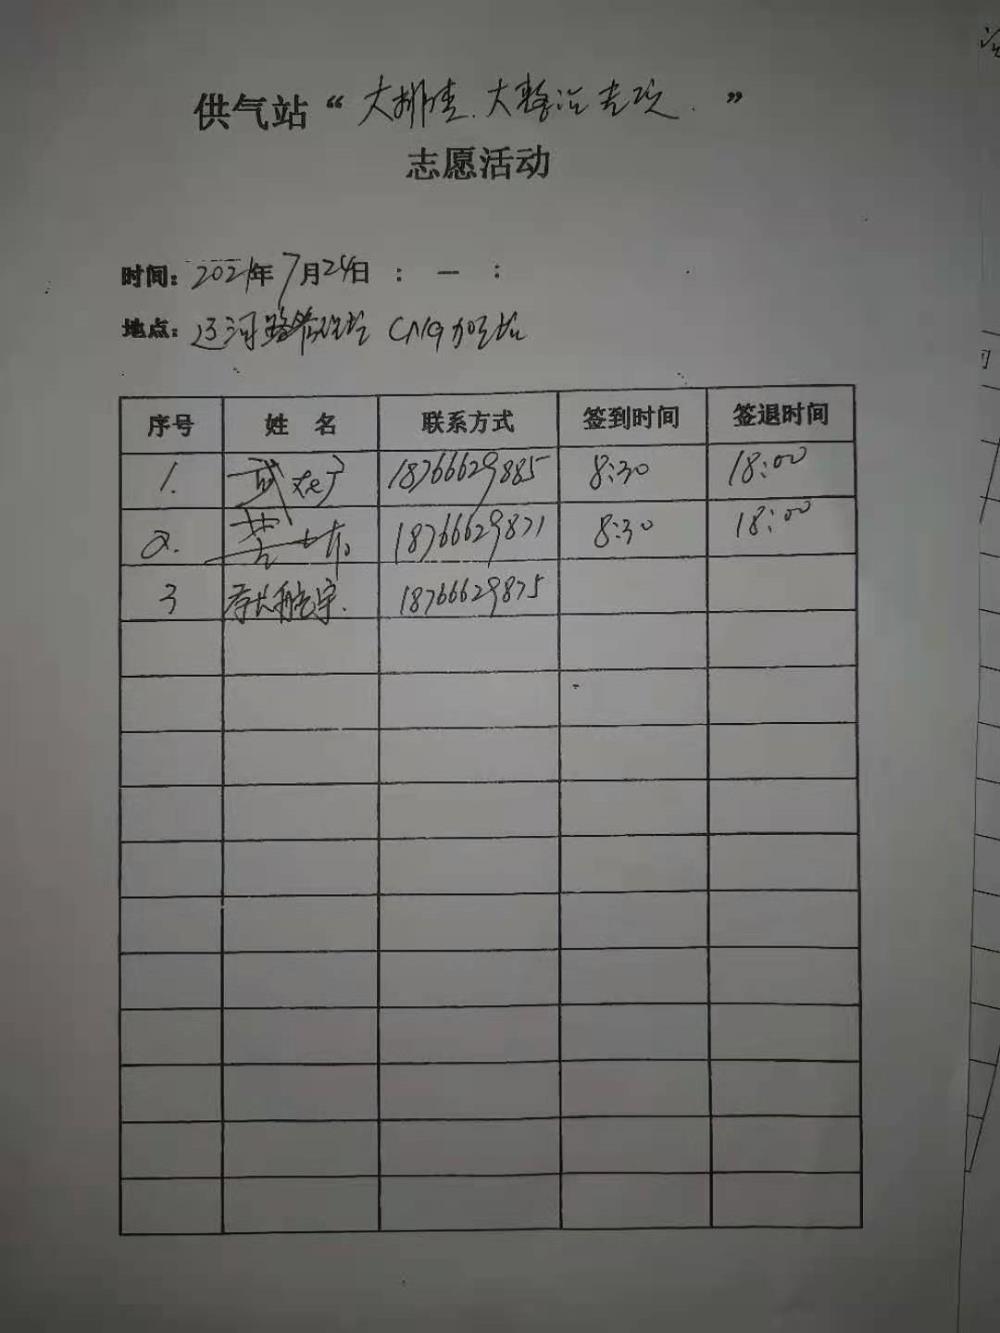 供气站“大排查.大整治专项.”
志愿活动
时间：2021年7月24日 ： — ：
地点：辽河路管理站 CNG加气站
序号 姓 名 联系方式 签到时间 签退时间
1. 武 18766629885 8:30 18:00
2. 18766629871 8:30 18:00
3 宇. 18766629875